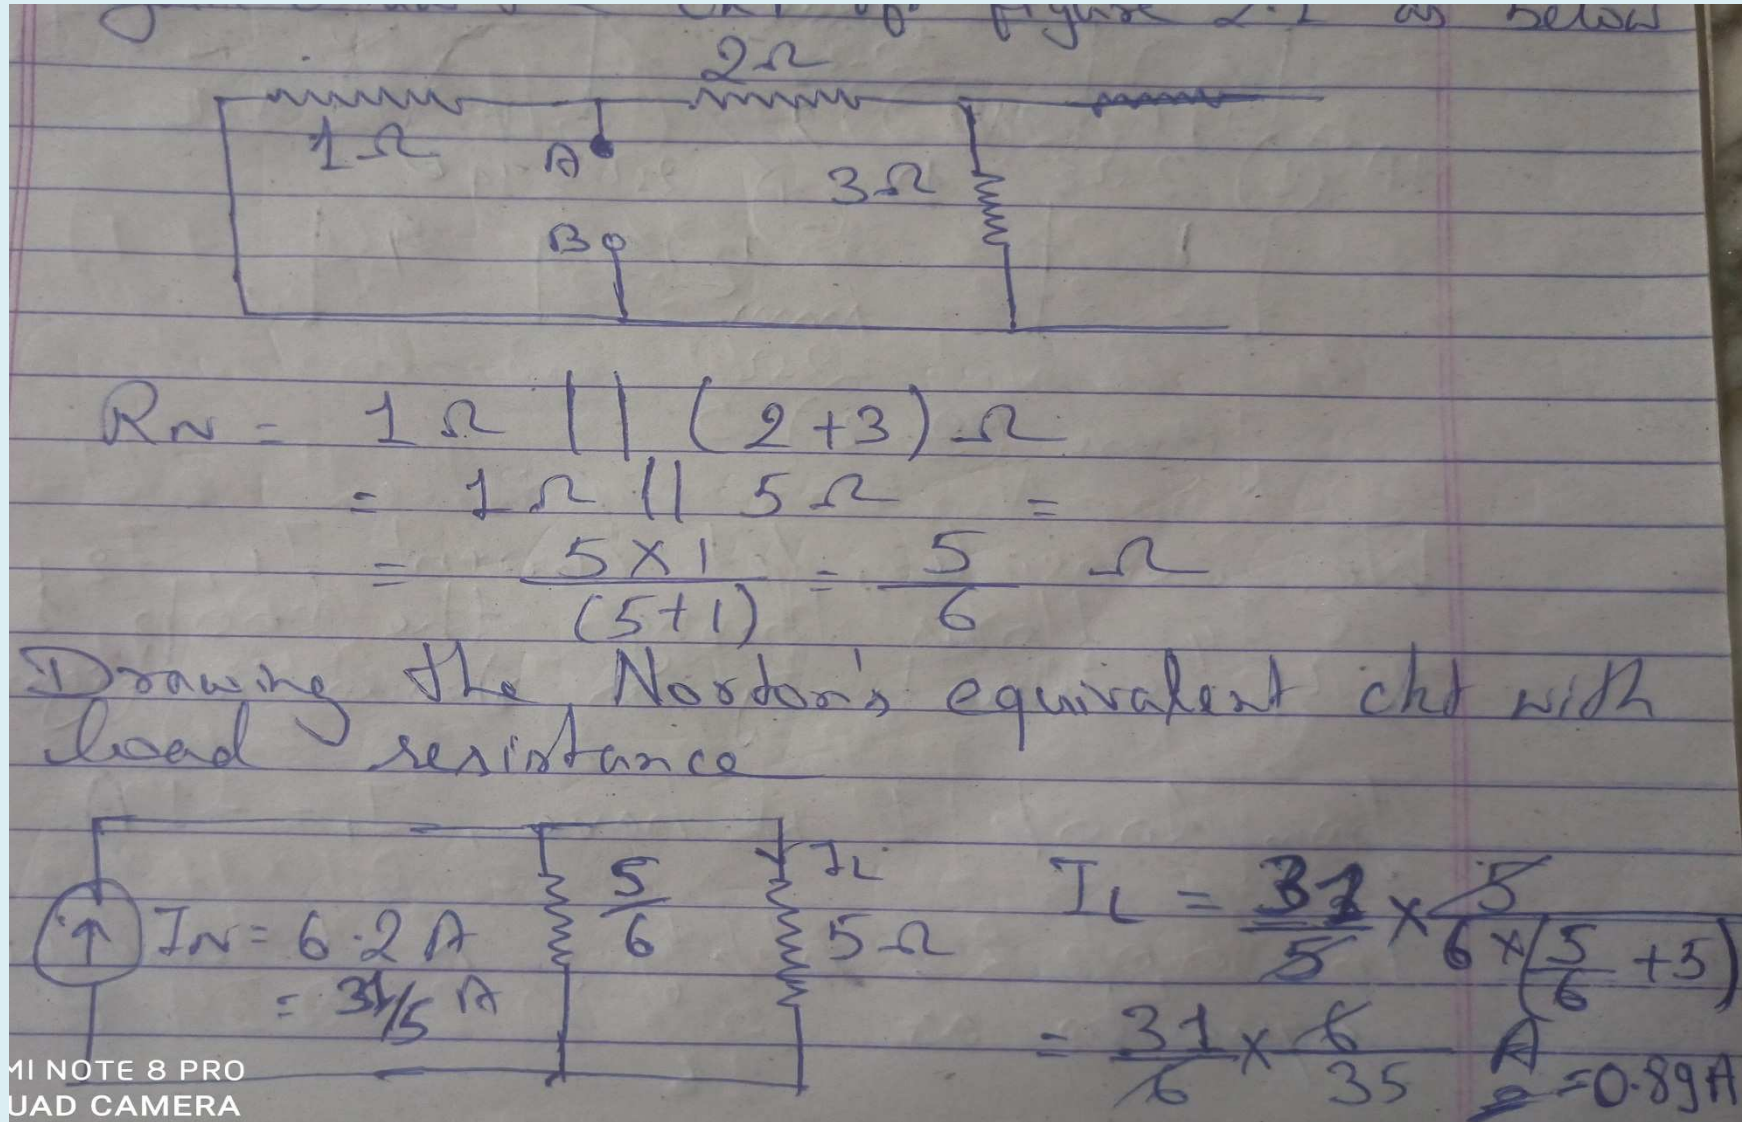 figure 2.1 as below
2Ω
1Ω
A
3Ω
B
RN = 1Ω || (2+3)Ω
= 1Ω || 5Ω =
= 5×1/(5+1) = 5/6 Ω
Drawing the Norton's equivalent ckt with
load resistance
IN = 6.2 A
= 31/5 A
5/6
IL
5Ω
IL = 31/5 × 5/6×(5/6+5)
= 31/6 × 6/35 A
= 0.89A
MI NOTE 8 PRO
UAD CAMERA